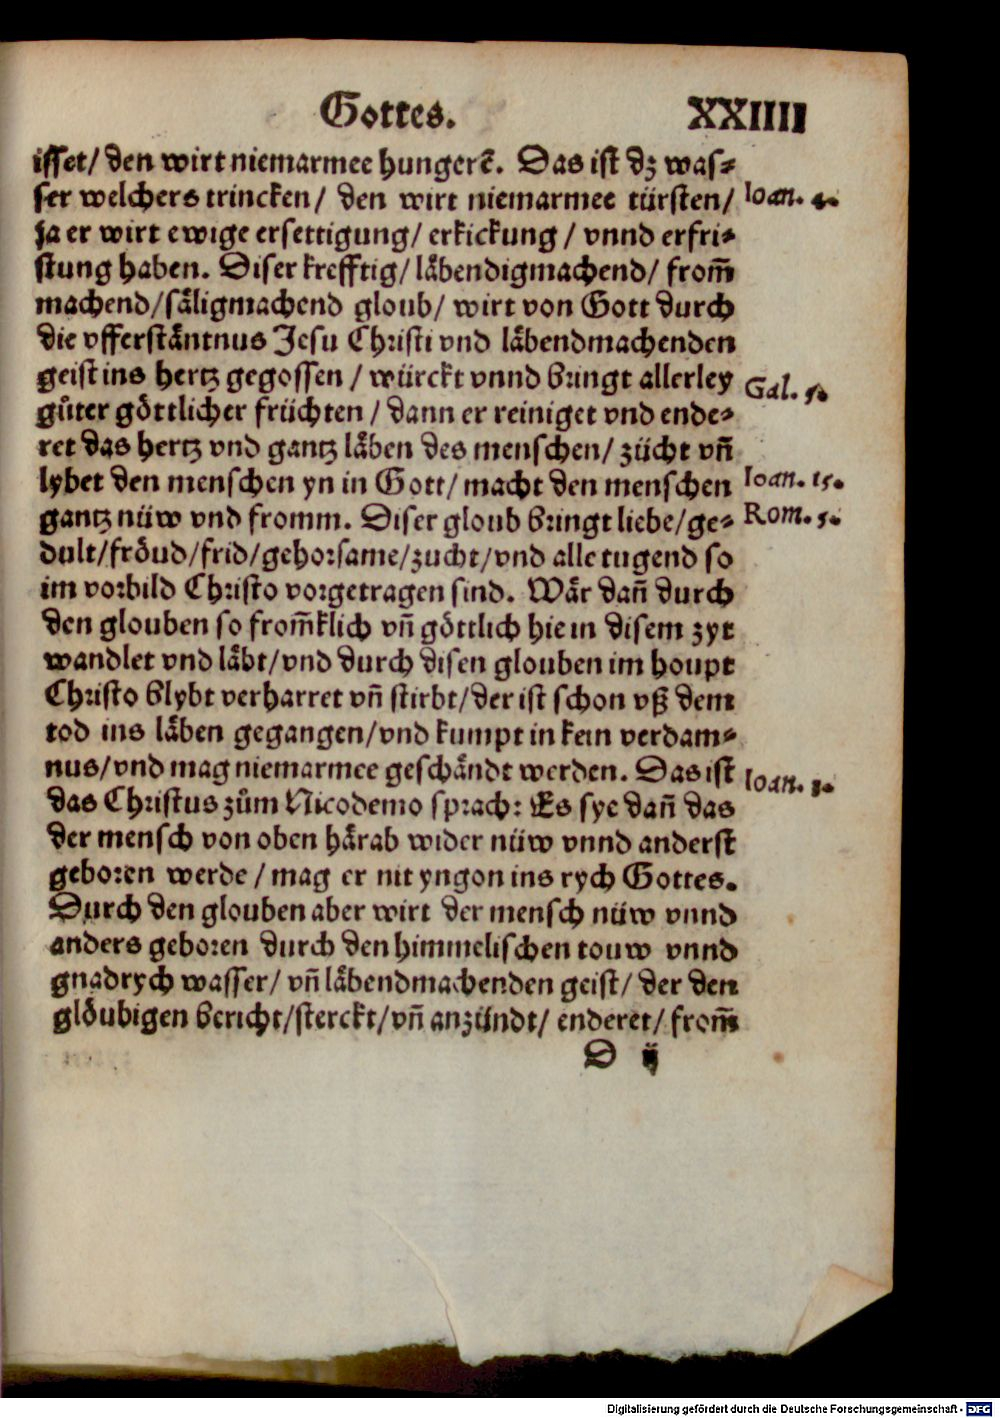 Gottes. XXIIII
isset/ den wirt niemarmee hungerē. Das ist dz was⸗
ser welchers trincken/ den wirt niemarmee türsten/ Ioan. 4.
ja er wirt ewige ersettigung/ erkickung / vnnd erfri⸗
stung haben. Diser krefftig/ läbendigmachend/ from̄
machend/säligmachend gloub/ wirt von Gott durch
die vfferständtnus Jesu Christi vnd läbendmachenden
geist ins hertz gegossen / würckt vnnd bringt allerley Gal. 5.
gůter göttlicher früchten / dann er reiniget vnd ende⸗
ret das hertz vnd gantz läben des menschen/ zücht vn̄
lybet den menschen yn in Gott/ macht den menschen Ioan. 15.
gantz nüw vnd fromm. Diser gloub bringt liebe/ge⸗ Rom. 5.
dult/fröud/frid/gehorsame/zucht/vnd alle tugend so
im vorbild Christo vorgetragen sind. Wär dan̄ durch
den glouben so from̄klich vn̄ göttlich hie in disem zyt
wandlet vnd läbt/vnd durch disen glouben im houpt
Christo blybt verharret vn̄ stirbt/der ist schon vß dem
tod ins läben gegangen/vnd kumpt in kein verdam⸗
nus/vnd mag niemarmee geschändt werden. Das ist Ioan. 3.
das Christus zům Nicodemo sprach: Es sye dan̄ das
der mensch von oben härab wider nüw vnnd anderst
geboren werde / mag er nit yngon ins rych Gottes.
Durch den glouben aber wirt der mensch nüw vnnd
anders geboren durch den himmelischen touw vnnd
gnadrych wasser/ vn̄ läbendmachenden geist/ der den
glöubigen bericht/sterckt/vn̄ anzündt/ enderet/ from̄
D ij
Digitalisierung gefördert durch die Deutsche Forschungsgemeinschaft - DFG